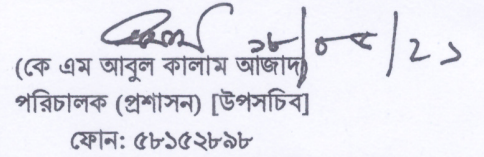 ১৮/০৫/২১
(কে এম আবুল কালাম আজাদ)
পরিচালক (প্রশাসন) [উপসচিব]
ফোন: ৫৮১৫২৮৯৮